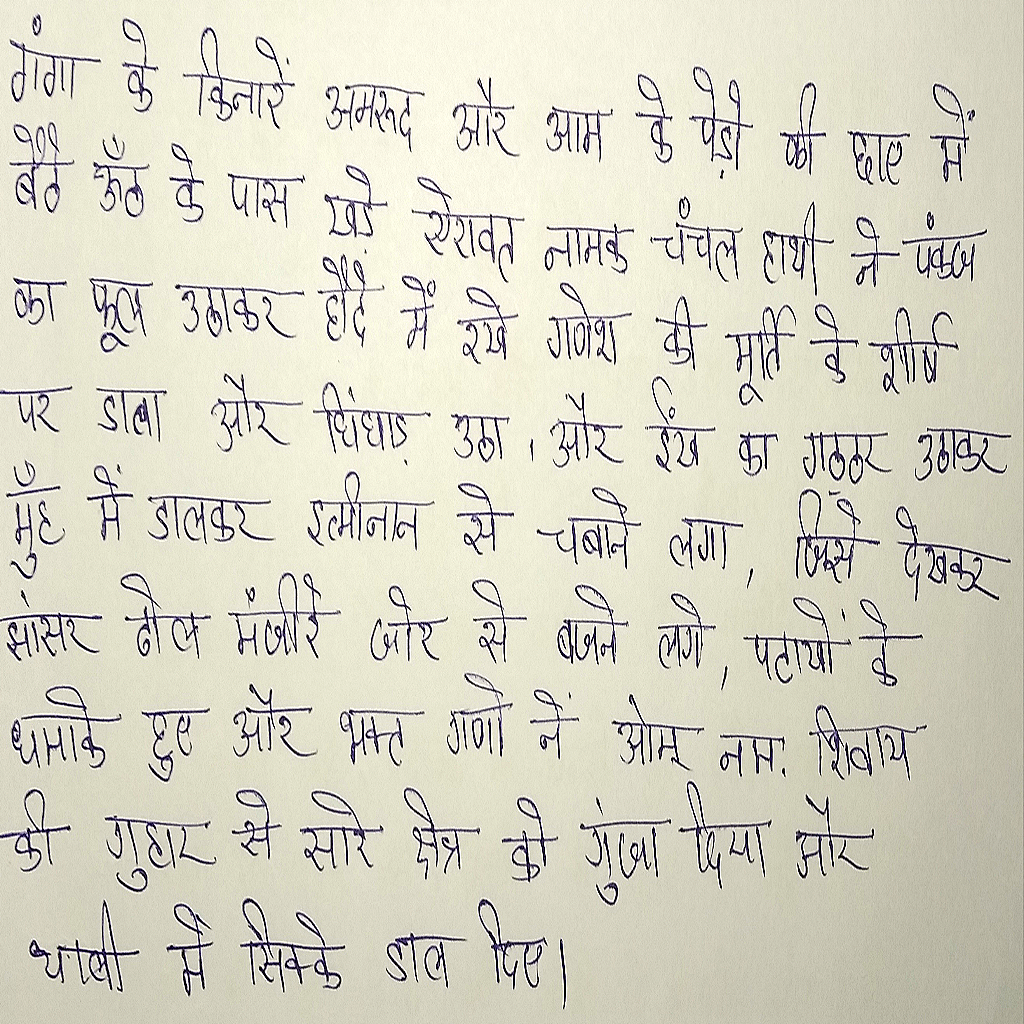 गंगा के किनारें अमरूद और आम के पेड़ो की छाए में
बैठे ऊँठ के पास खड़े ऐरावत नामक चंचल हाथी ने पंकज
का फूल उठाकर हौदे में रखे गणेश की मूर्ति के शीर्ष
पर डाला और चिंघाड़ उठा, और ईंख का गठ्ठर उठाकर
मुँह में डालकर इत्मीनान से चबाने लगा, जिसे देखकर
झांसर ढोल मंजीरे जोर से बजने लगे, पटाखों के
धमाके हुए और भक्त गणो नें ओम नम: शिवाय
की गुहार से सारे क्षेत्र को गुंजा दिया और
थाली में सिक्के डाल दिए।